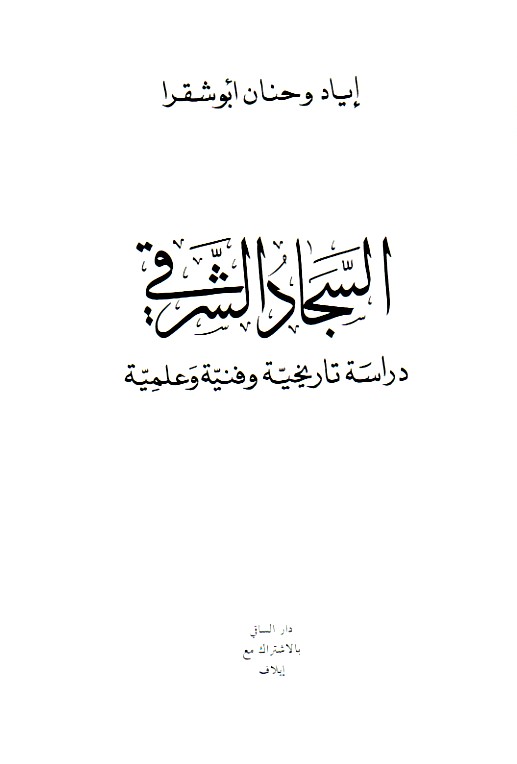 إياد وحنان أبوشقرا
السَّجادُ الشَّرقي
دراسَة تاريخيّة وفنيّة وَعلمِيّة
دار الساقي
بالاشتراك مع
إيلاف